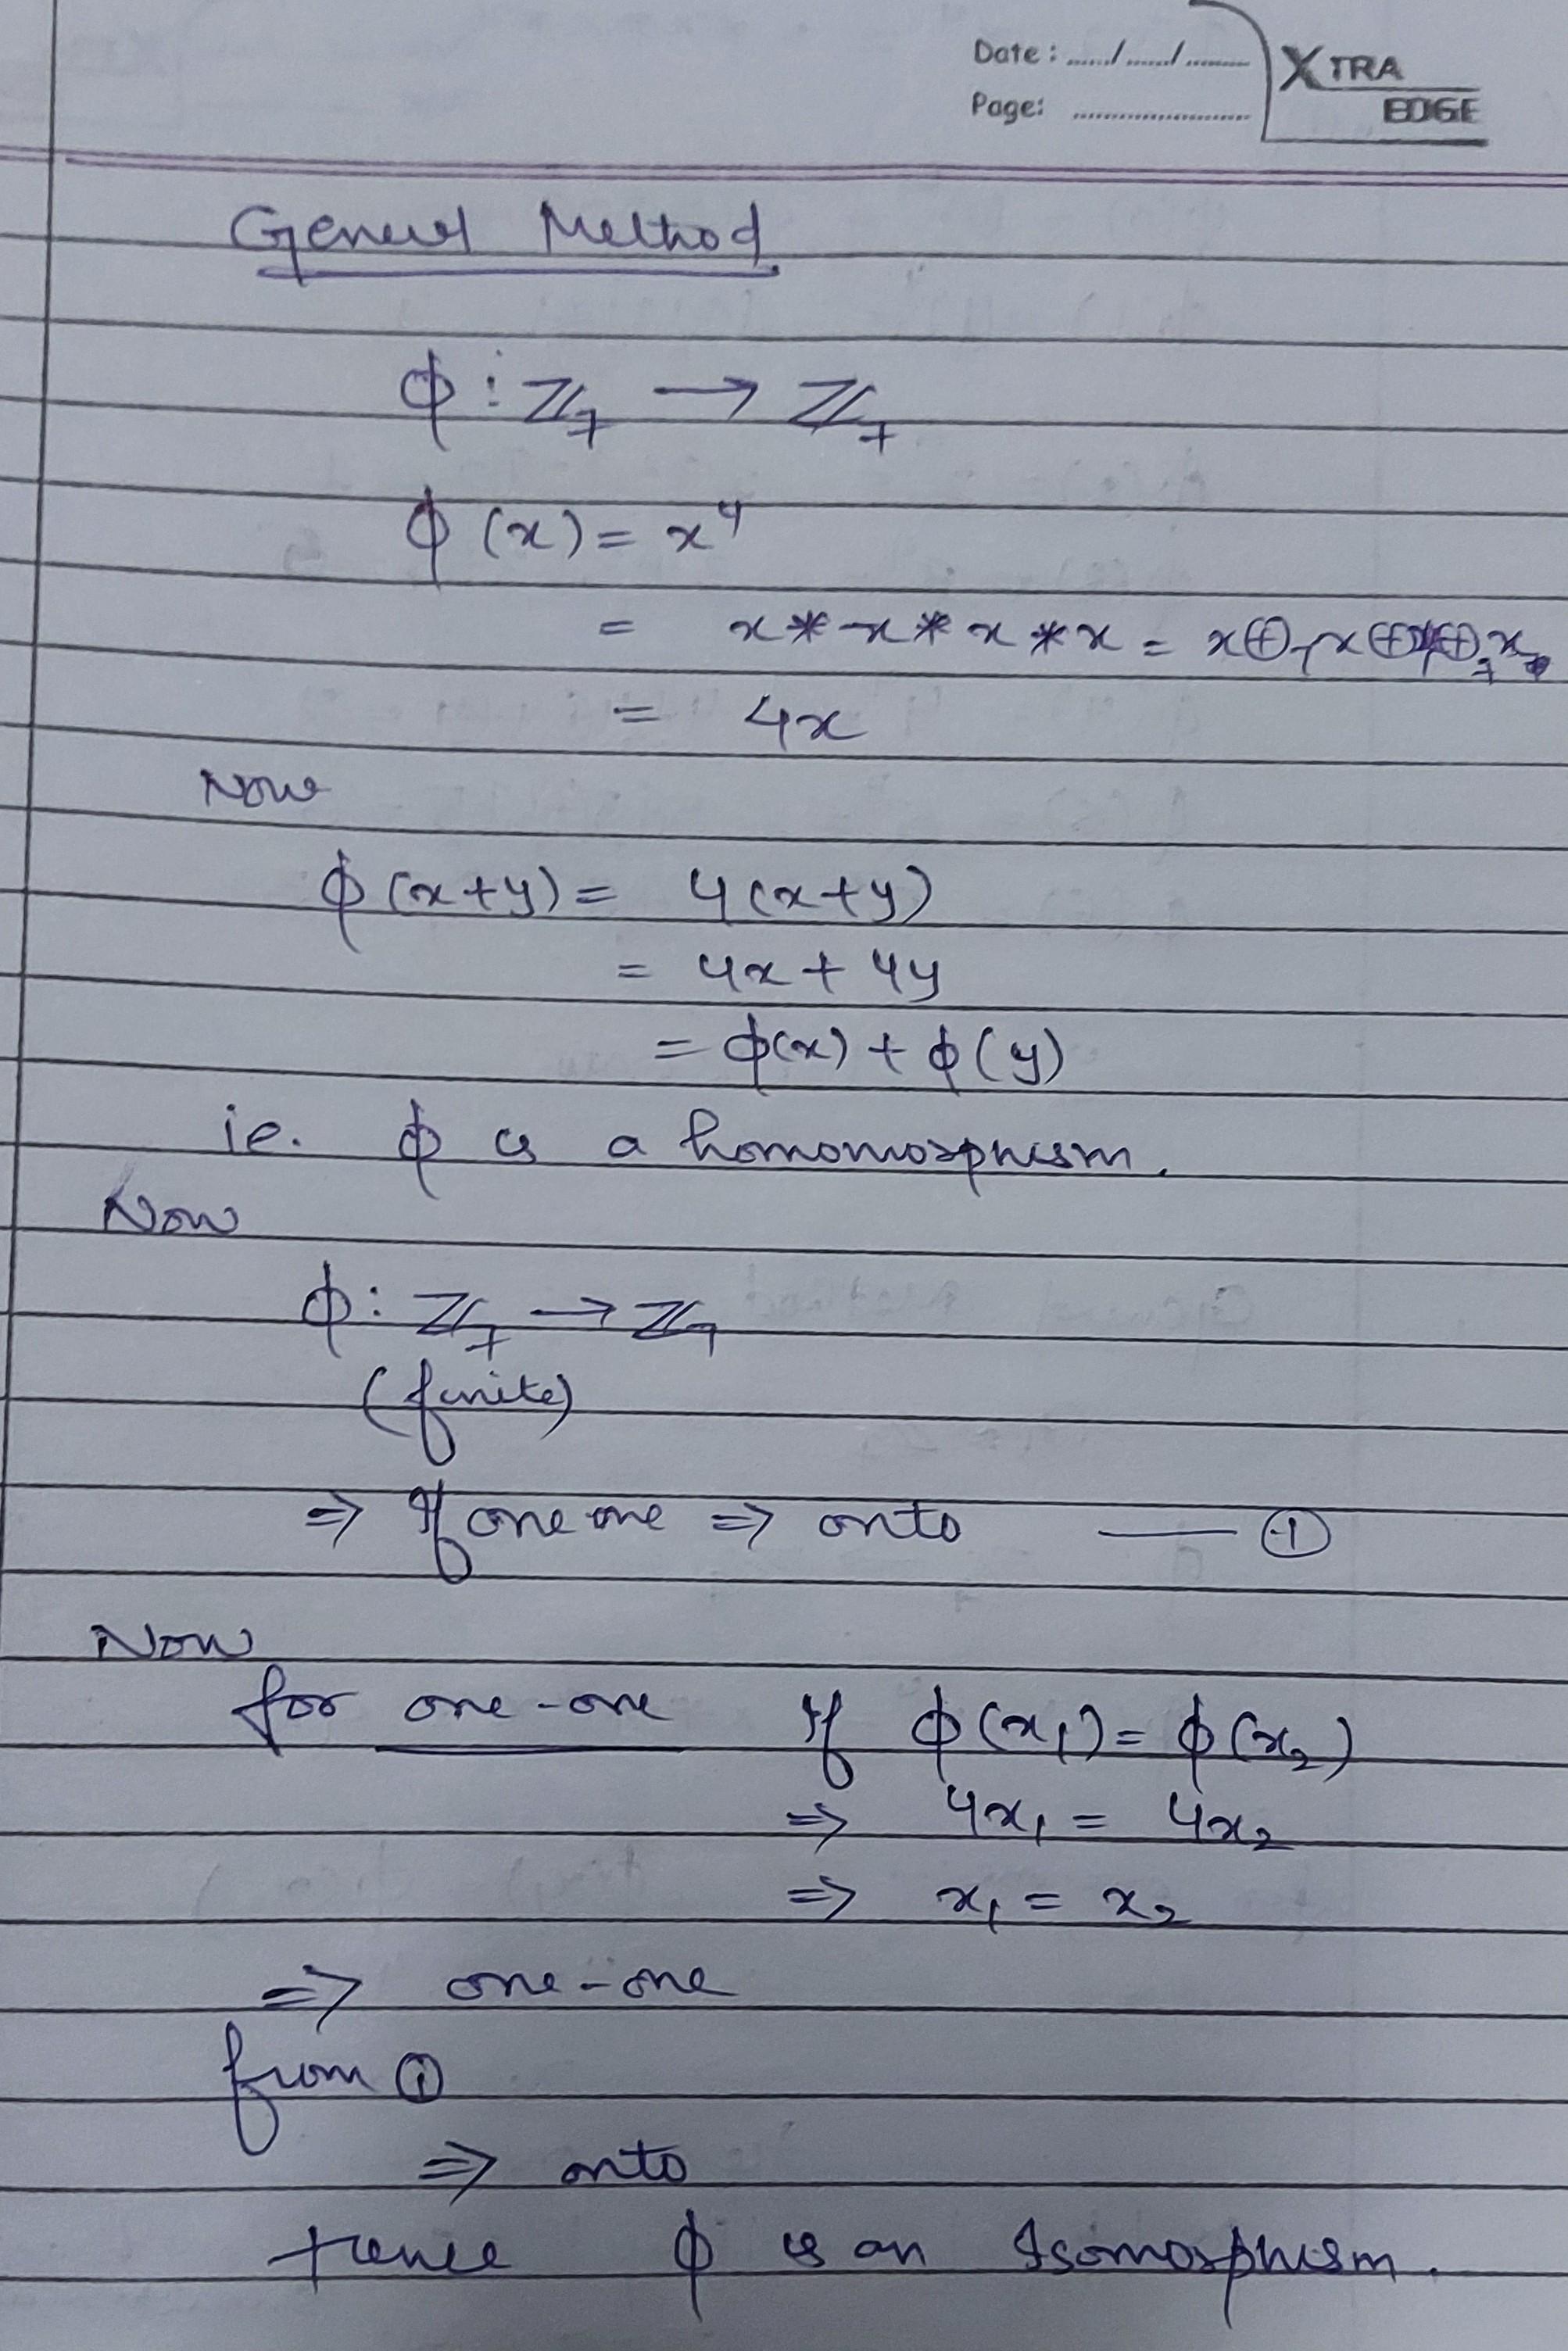 Date : ....../....../.........
Page: ............................
XTRA
EDGE
General Method
ϕ : ℤ₇ → ℤ₇
ϕ (x) = x⁴
= x * x * x * x = x ⊕₇ x ⊕₇ x ⊕₇ x
= 4x
Now
ϕ (x+y) = 4(x+y)
= 4x + 4y
= ϕ(x) + ϕ(y)
ie. ϕ is a homomorphism.
Now
ϕ : ℤ₇ → ℤ₇
(finite)
⇒ If one one ⇒ onto —— ①
Now
for one-one If ϕ(x₁) = ϕ(x₂)
⇒ 4x₁ = 4x₂
⇒ x₁ = x₂
⇒ one-one
from ①
⇒ onto
Hence ϕ is an Isomorphism.